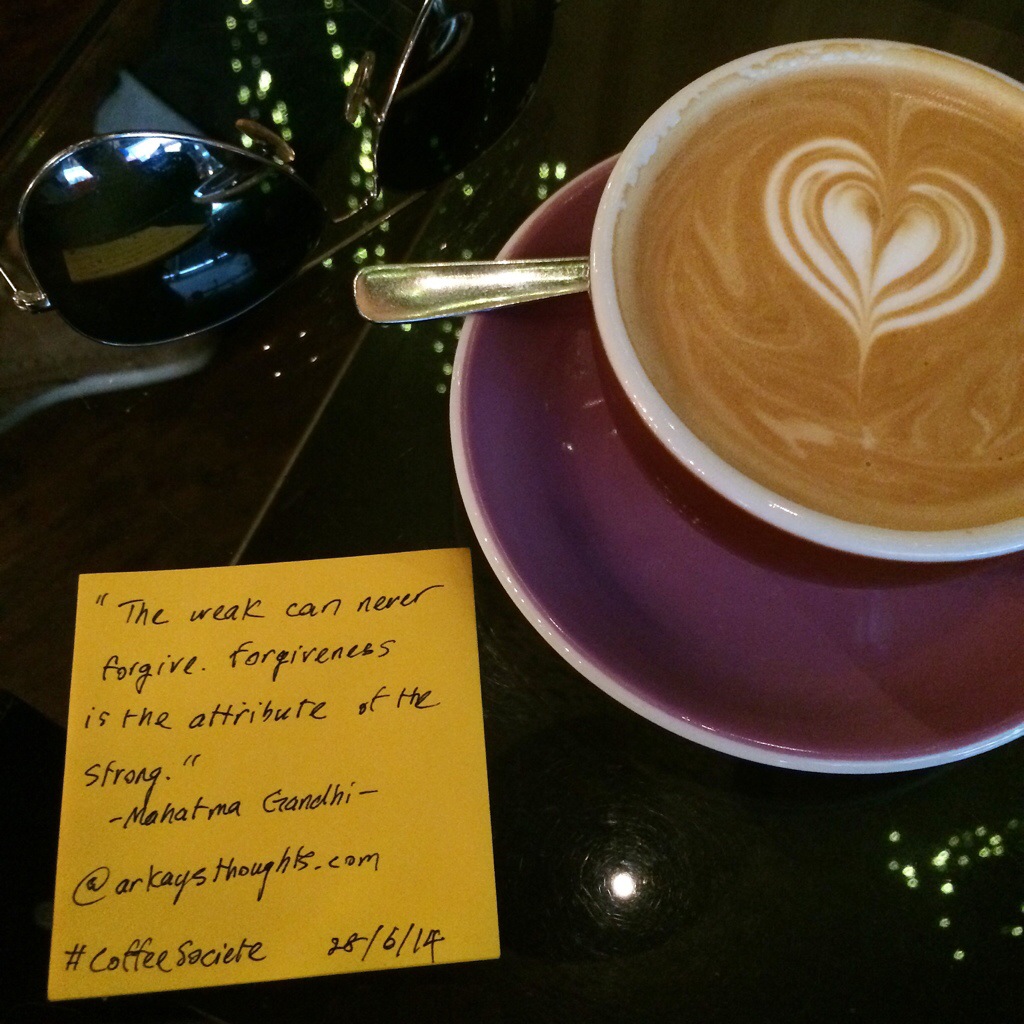 "The weak can never
forgive. Forgiveness
is the attribute of the
strong."
-Mahatma Gandhi-
@arkaysthoughts.com
#CoffeeSociete 28/6/14